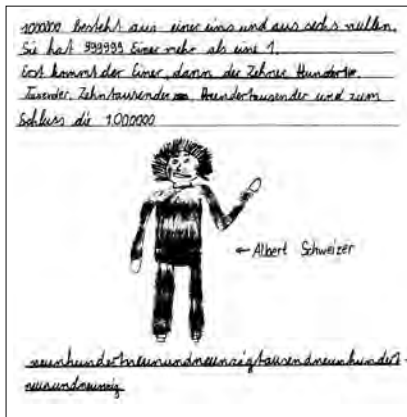 1000000 besteht aus einer eins und aus sechs nullen.
Sie hat 999999 Einer mehr als eine 1.
Erst kommt der Einer, dann der Zehner Hunderter
Tausender, Zehntausender Hunderttausender und zum
Schluss die 1000000
← Albert Schweizer
neunhundertneunundneunzigtausendneunhundert-
neunundneunzig